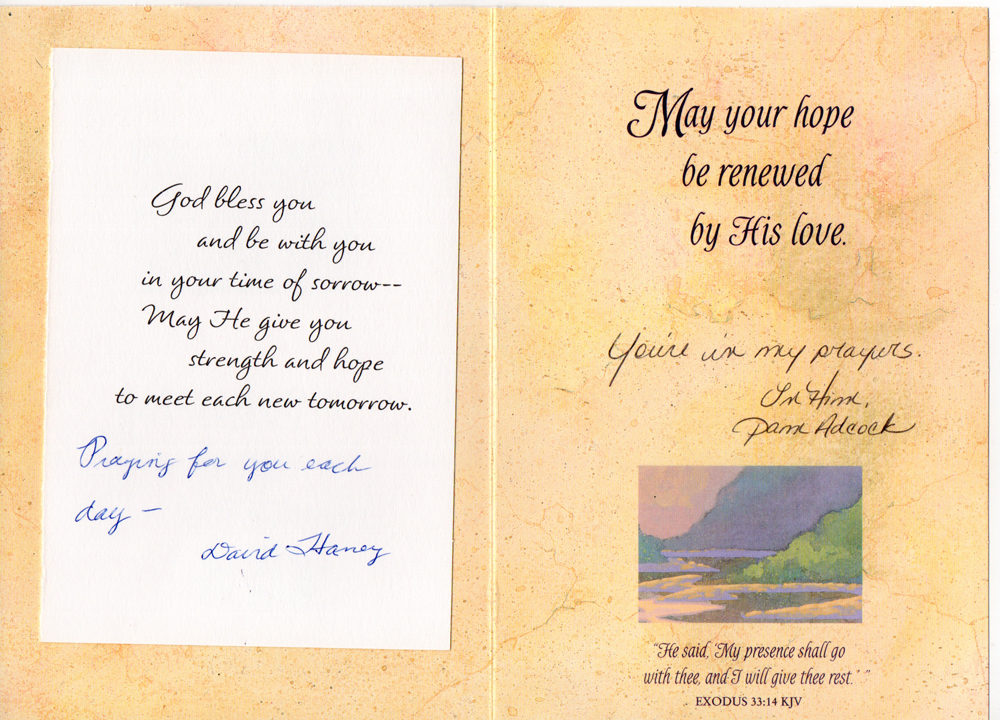 God bless you
and be with you
in your time of sorrow--
May He give you
strength and hope
to meet each new tomorrow.
Praying for you each
day –
David Haney
May your hope
be renewed
by His love.
You're in my prayers.
In Him,
Pam Adcock
"He said, 'My presence shall go
with thee, and I will give thee rest.' "
EXODUS 33:14 KJV